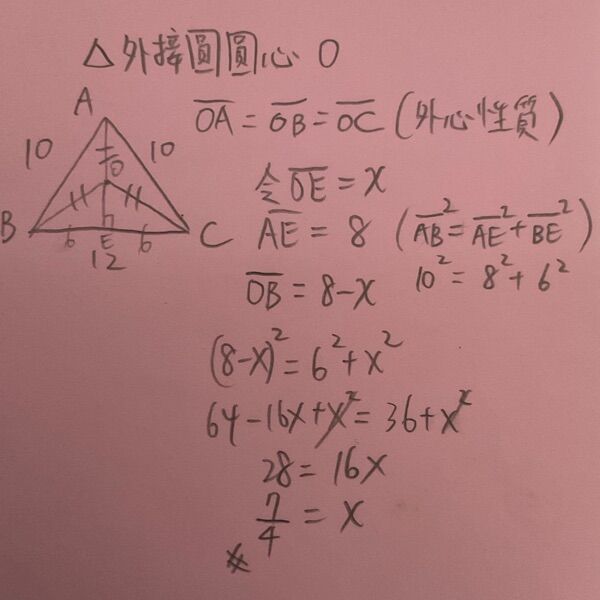 △外接圓圓心 O
A
10 10
O
B 6 E 6 C
12
OA = OB = OC (外心性質)
令 OE = x
AE = 8 (AB² = AE² + BE²)
10² = 8² + 6²
OB = 8-x
(8-x)² = 6² + x²
64-16x+x² = 36+x²
28 = 16x
7/4 = x